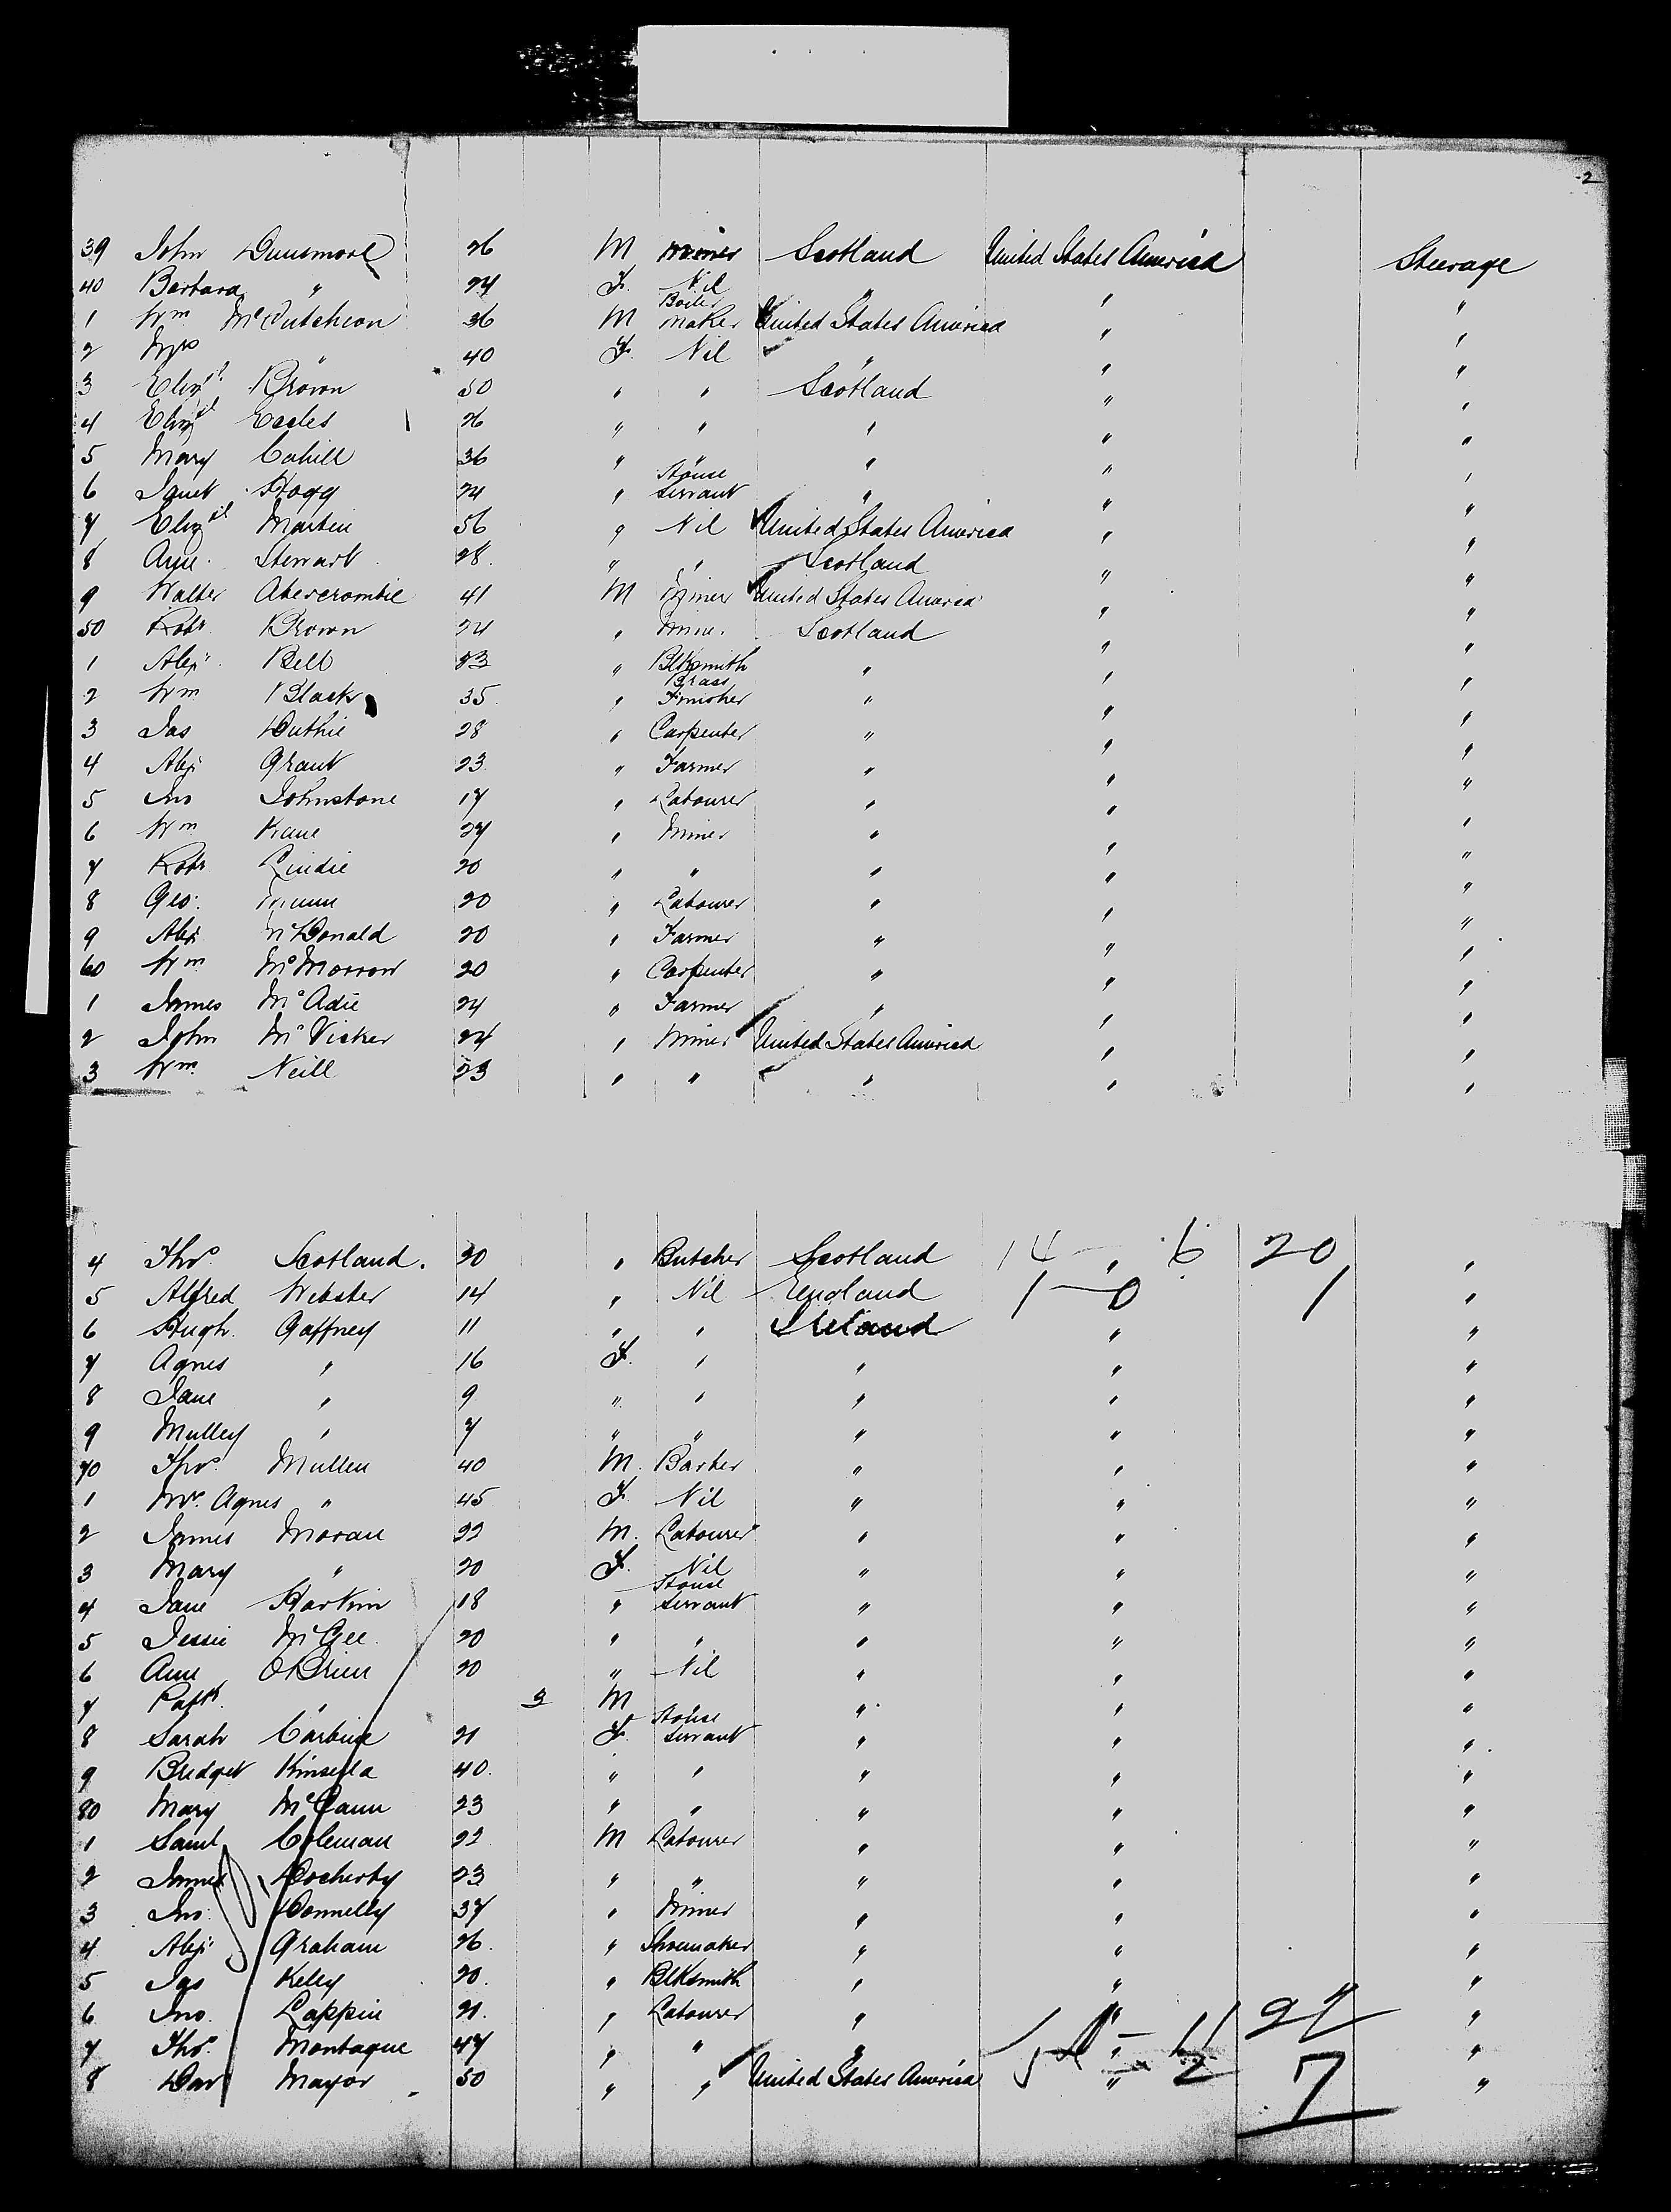 2
39 John Dunsmore 26 M Miner Scotland United States America Steerage
40 Barbara " 24 F. Nil " " "
1 Wm McCutcheon 36 M Boiler Maker United States America " "
2 Mrs " 40 F. Nil " " "
3 Elizth Brown 50 " " Scotland " "
4 Elizth Eccles 26 " " " " "
5 Mary Cahill 36 " " " " "
6 Janet Hogg 24 " House Servant " " "
7 Elizth Martin 56 " Nil United States America " "
8 Ann Stewart 28 " " Scotland " "
9 Walter Abercrombie 41 M Miner United States America " "
50 Robt Brown 24 " Miner Scotland " "
1 Alexr Bell 23 " Blksmith " " "
2 Wm Black 35 " Brass Finisher " " "
3 Jas Duthie 28 " Carpenter " " "
4 Alexr Grant 23 " Farmer " " "
5 Jno Johnstone 17 " Labourer " " "
6 Wm Kane 27 " Miner " " "
7 Robt Lindie 20 " " " " "
8 Geo. Mann 20 " Labourer " " "
9 Alexr McDonald 20 " Farmer " " "
60 Wm McMorrow 20 " Carpenter " " "
1 James McAdie 24 " Farmer " " "
2 John McVicker 24 " Miner United States America " "
3 Wm Neill 23 " " " " "
4 Thos Scotland. 30 " Butcher Scotland 14 " 6 20 "
5 Alfred Webster 14 " Nil England 1 - 0 1 "
6 Hugh Gaffney 11 " " Ireland " "
7 Agnes " 16 F. " " " "
8 Jane " 9 " " " " "
9 Mulley " 7 " " " " "
70 Thos Mullen 40 M. Barber " " "
1 Mrs. Agnes " 45 F. Nil " " "
2 James Moran 22 M. Labourer " " "
3 Mary " 20 F. Nil " " "
4 Jane Harkin 18 " House Servant " " "
5 Jessie McGee 20 " " " " "
6 Ann O'Brien 20 " Nil " " "
7 Patk " 3 M " " " "
8 Sarah 21 F. House Servant " " "
9 Bridget Kinsella 40. " " " " "
80 Mary McCann 23 " " " " "
1 Saml Coleman 22 M Labourer " " "
2 James Docherty 23 " " " " "
3 Jno Donnelly 37 " Miner " " "
4 Alexr Graham 26. " Shoemaker " " "
5 Jas Kelly 20. " Blksmith " " "
6 Jno. Lappin 21. " Labourer " " "
7 Thos. Montague 47 " " " " "
8 Dav Mayor 50 " " United States America 5 " 2 7 "